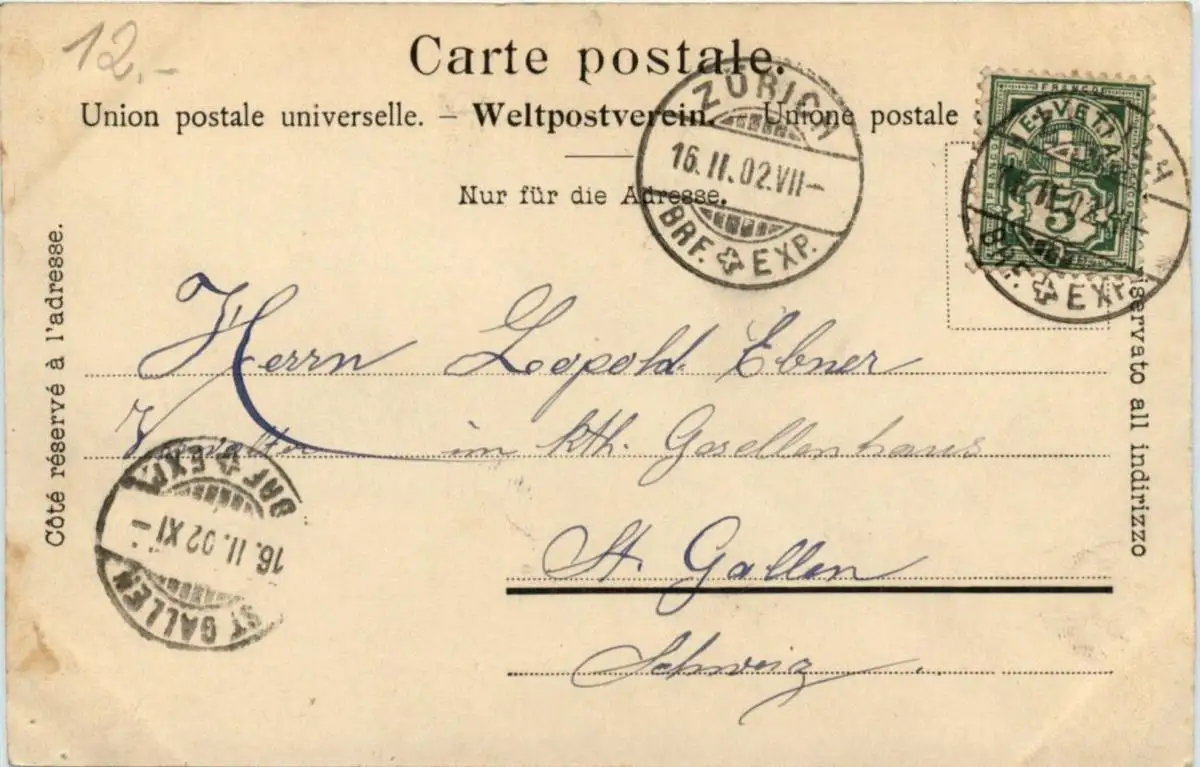 12.-
Carte postale.
Union postale universelle. – Weltpostverein. – Unione postale
Nur für die Adresse.
Côté réservé à l'adresse.
riservato all indirizzo
ZÜRICH
16. II. 02. VII –
BRF. EXP.
FRANCO
HELVETIA
5
BRF. EXP.
Herrn Leopold Ebner
im kth. Gesellenhaus
St. Gallen
Schweiz.
ST. GALLEN
16. II. 02 XI –
BRF. EXP.